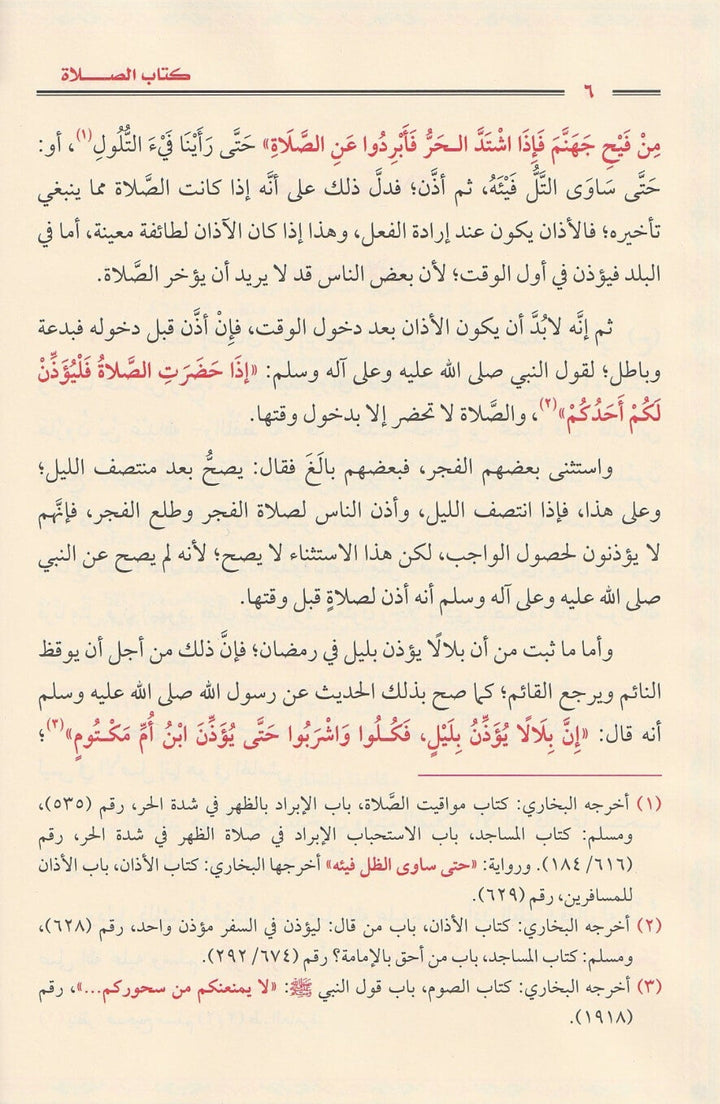 كتاب الصـــلاة
٦
مِنْ فَيْحِ جَهَنَّمَ فَإِذَا اشْتَدَّ الـحَرُّ فَأَبْرِدُوا عَنِ الصَّلَاةِ» حَتَّى رَأَيْنَا فَيْءَ التُّلُولِ(١)، أو:
حَتَّى سَاوَى التَّلُّ فَيْئَهُ، ثم أذَّن؛ فدلَّ ذلك على أنَّه إذا كانت الصَّلاة مما ينبغي
تأخيره؛ فالأذان يكون عند إرادة الفعل، وهذا إذا كان الآذان لطائفة معينة، أما في
البلد فيؤذن في أول الوقت؛ لأن بعض الناس قد لا يريد أن يؤخر الصَّلاة.
ثم إنَّه لابُدَّ أن يكون الأذان بعد دخول الوقت، فإِنْ أذَّن قبل دخوله فبدعة
وباطل؛ لقول النبي صلى الله عليه وعلى آله وسلم: «إِذَا حَضَرَتِ الصَّلاةُ فَلْيُؤَذِّنْ
لَكُمْ أَحَدُكُمْ»(٢)، والصَّلاة لا تحضر إلا بدخول وقتها.
واستثنى بعضهم الفجر، فبعضهم بالَغَ فقال: يصحُّ بعد منتصف الليل؛
وعلى هذا، فإذا انتصف الليل، وأذن الناس لصلاة الفجر وطلع الفجر، فإنَّهم
لا يؤذنون لحصول الواجب، لكن هذا الاستثناء لا يصح؛ لأنه لم يصح عن النبي
صلى الله عليه وعلى آله وسلم أنه أذن لصلاةٍ قبل وقتها.
وأما ما ثبت من أن بلالًا يؤذن بليل في رمضان؛ فإنَّ ذلك من أجل أن يوقظ
النائم ويرجع القائم؛ كما صح بذلك الحديث عن رسول الله صلى الله عليه وسلم
أنه قال: «إِنَّ بِلَالًا يُؤَذِّنُ بِلَيْلٍ، فَكُـلُوا وَاشْرَبُوا حَتَّى يُؤَذِّنَ ابْنُ أُمِّ مَكْتُومٍ»(٣)؛
(١) أخرجه البخاري: كتاب مواقيت الصَّلاة، باب الإبراد بالظهر في شدة الحر، رقم (٥٣٥)،
ومسلم: كتاب المساجد، باب الاستحباب الإبراد في صلاة الظهر في شدة الحر، رقم
(٦١٦/ ١٨٤). ورواية: «حتى ساوى الظل فيئه» أخرجها البخاري: كتاب الأذان، باب الأذان
للمسافرين، رقم (٦٢٩).
(٢) أخرجه البخاري: كتاب الأذان، باب من قال: ليؤذن في السفر مؤذن واحد، رقم (٦٢٨)،
ومسلم: كتاب المساجد، باب من أحق بالإمامة؟ رقم (٦٧٤/ ٢٩٢).
(٣) أخرجه البخاري: كتاب الصوم، باب قول النبي ﷺ: «لا يمنعنكم من سحوركم...»، رقم
(١٩١٨).